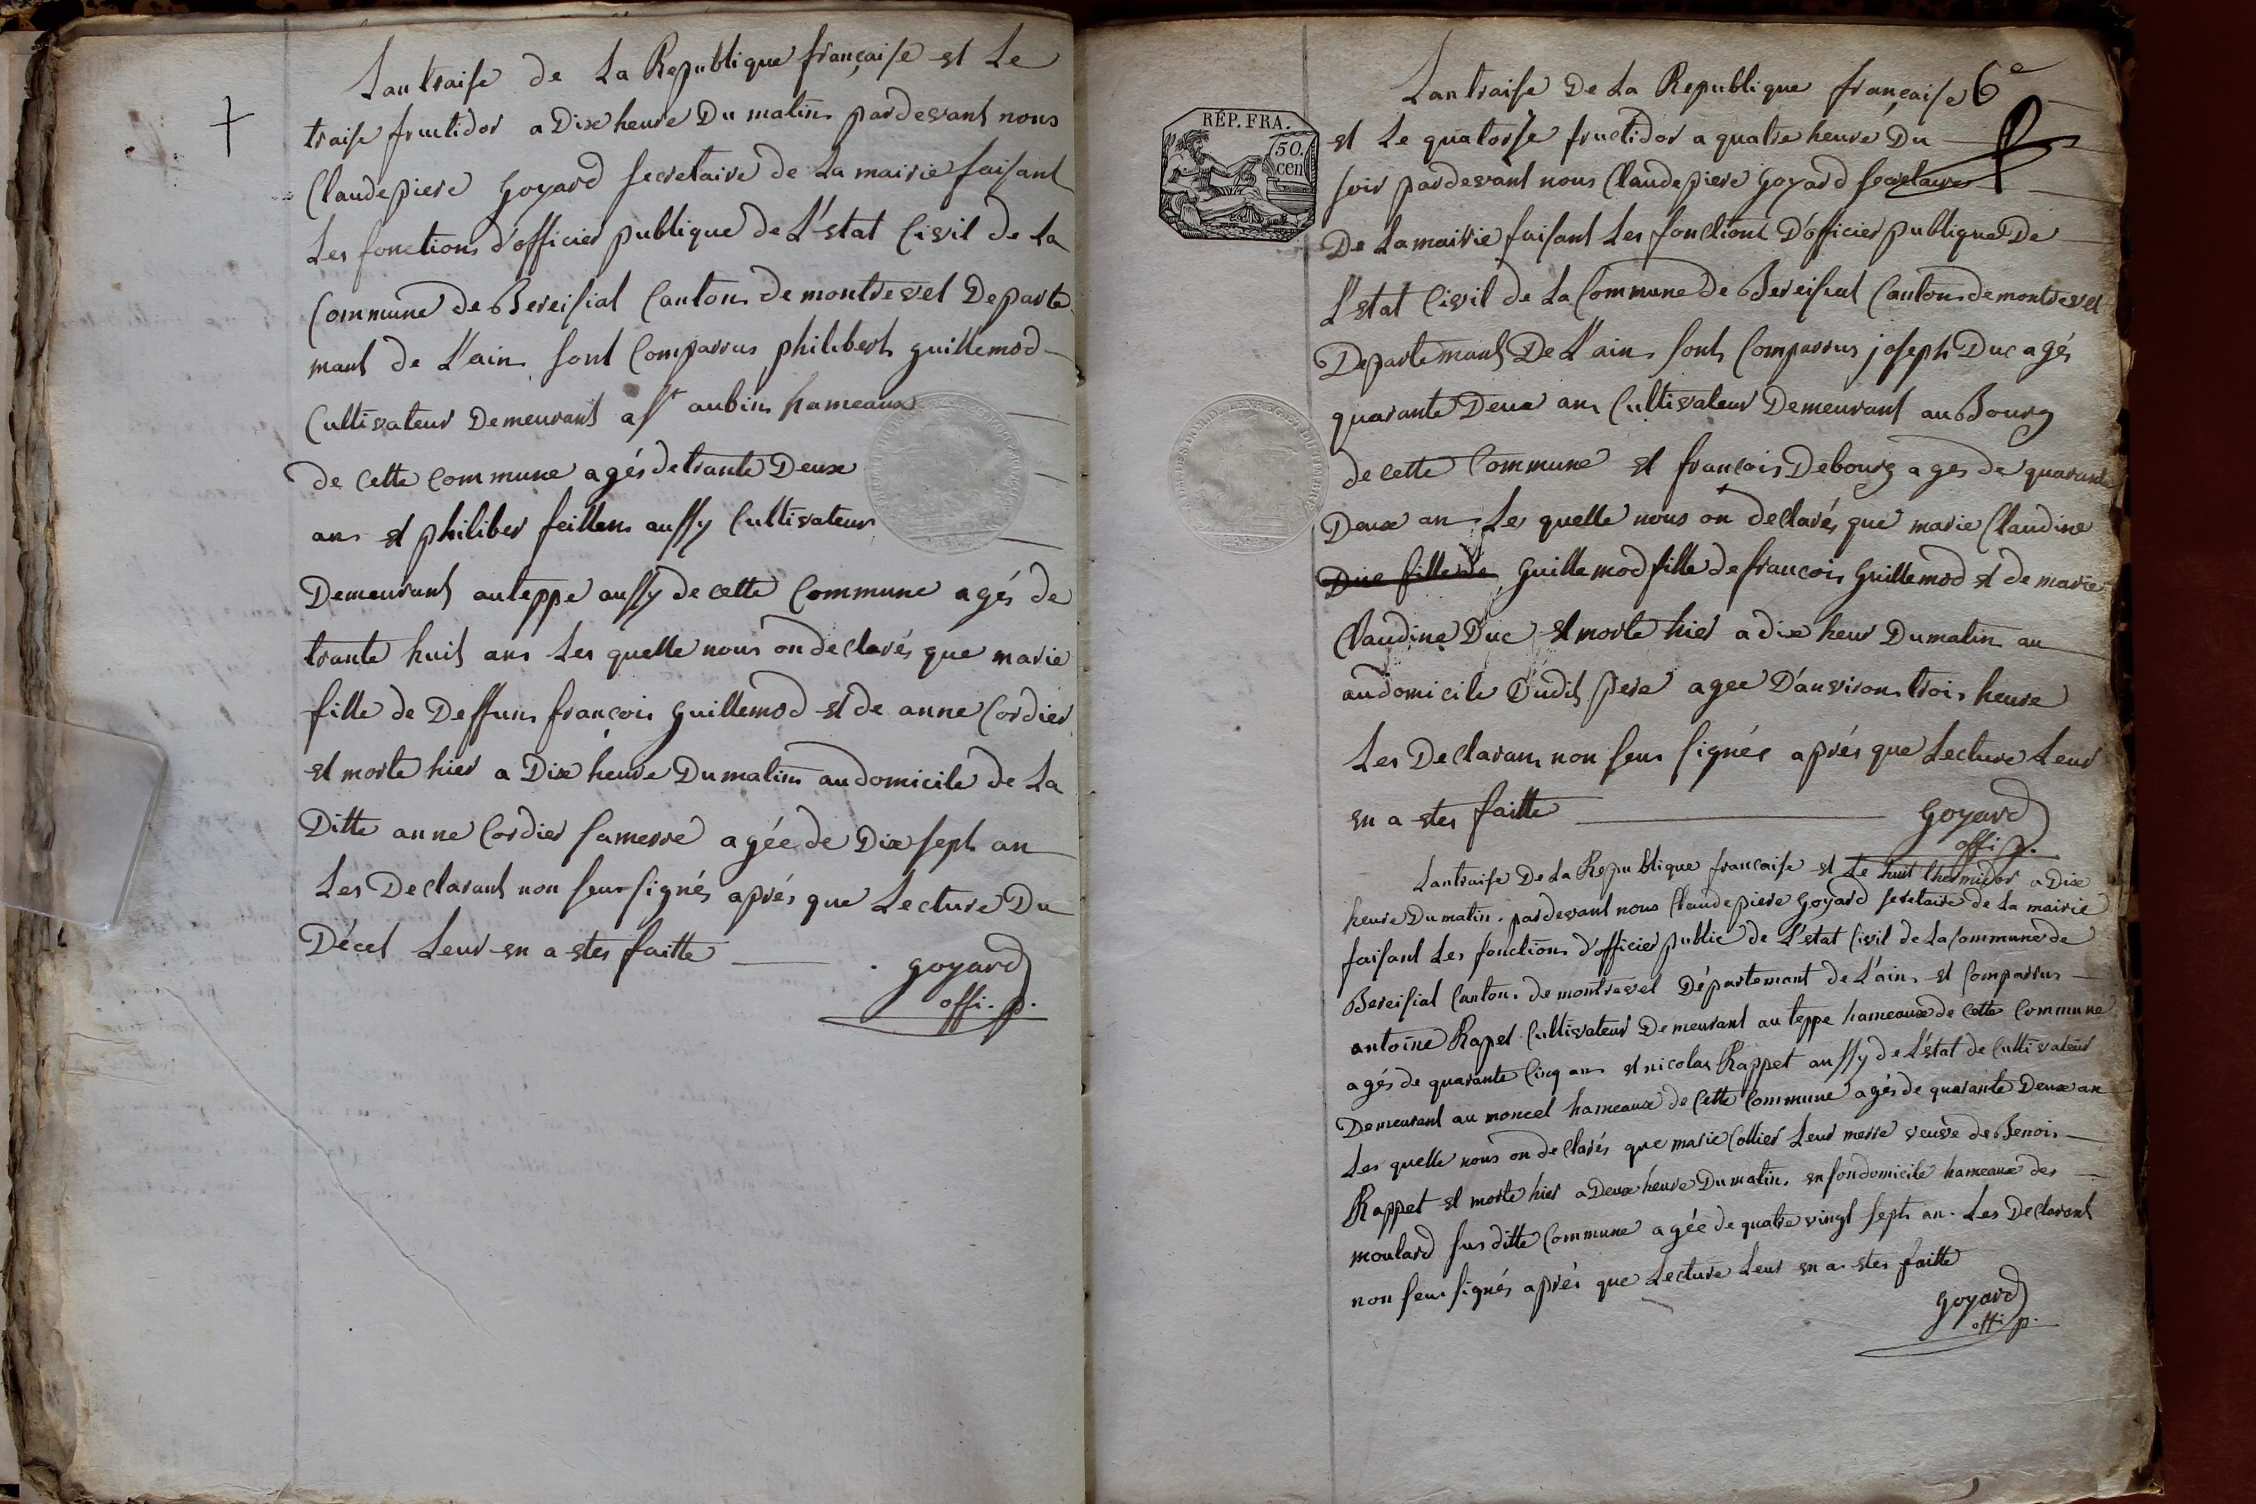 Lantraise de La Republique française et Le
traise fructidor a Dix heure Du matin pardevant nous
Claudepiere Goyard secretaire de La mairie faisant
Les fonctions d'officier publique de L'estat Civil de La
Commune de Bereisiat Canton de montrevel Departe
mant de L'ain sont Comparrus philibert guillemod
Cultivateur Demeurant a St aubin hameaux
de Cette Commune agés de trante Deux
ans et philiber feillens aussy Cultivateur
Demeurant auteppe aussy de cette Commune agés de
trante huit ans Les quelle nous on declarés que marie
fille de Deffun françois Guillemod et de anne Cordier
et morte hier a Dix heure Dumatin audomicile de La
Ditte anne Cordier samerre agée de Dix sept an
Les Declarant non seu signés aprés que Lecture Du
Décet Leur en a etes faitte
goyard
offi. p.
6e
RÉP. FRA.
50.
cen
Lantraise De La Republique française
et Le quatorze fructidor a quatre heure Du
soir pardevant nous Claudepiere Goyard secretaire
De Lamairie faisant Les fonctions D'officier publique De
L'stat Civil de La Commune de Bereisiat Canton de montrevel
Departemant De L'ain sont Comparrus joseph Duc agés
quarante Deux an Cultivateur Demeurant au Bourg
de cette Commune et françois Debourg ages de quarante
Deux an Les quelle nous on declarés que marie Claudine
Duc fille de Guillemod fille de françois Guillemod et de marie
Claudine Duc et morte hier a dix heur Dumatin au
audomicile Dudit pere agee D'anviron trois heure
Les Declaran non seu signée aprés que Lecture Leur
en a etes faitte
Goyard
offi. p.
Lantraise De La Republique francaise et Le huit thermidor a Dix
heure Dumatin pardevant nous Claudepiere Goyard secretaire de La mairie
faisant Les fonctions d'officier public de L'estat Civil de La Commune de
Bereisiat Canton de montrevel Département de L'ain et Comparrus
antoine Rapet Cultivateur Demeurant au teppe hameaux de Cette Commune
agés de quarante Cinq ans et nicolas Rappet aussy de L'éstat de Cultivateur
Demeurant au moncel hameaux de Cette Commune agés de quarante Deux an
Les quelle nous on declarés que marie Collier Leur merre veuve de Benoi
Rappet et morte hier a Deux heure Dumatin en sondomicile hameaux des
moulard sus ditte Commune agée de quatre vingt sept an. Les Declarant
non seu signés aprés que Lecture Leur en a etes faitte
Goyard
offi. p.